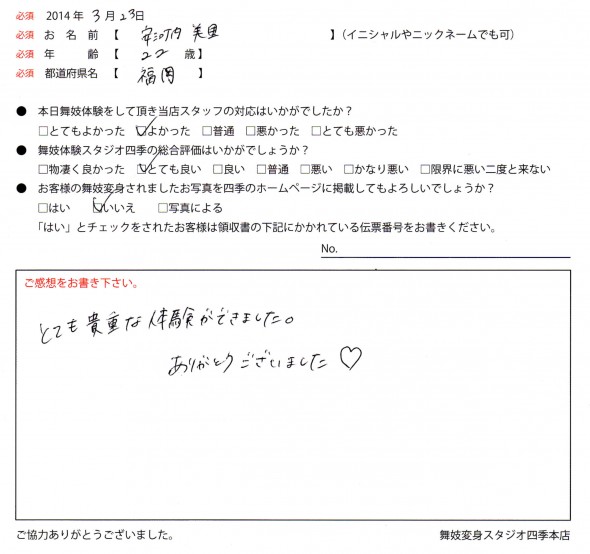 必須 2014年 3月 23日
必須 お名前【 美里 】(イニシャルやニックネームでも可)
必須 年齢【 22 歳】
必須 都道府県名【 福岡 】
● 本日舞妓体験をして頂き当店スタッフの対応はいかがでしたか?
□とてもよかった ☑よかった □普通 □悪かった □とても悪かった
● 舞妓体験スタジオ四季の総合評価はいかがでしょうか?
□物凄く良かった ☑とても良い □良い □普通 □悪い □かなり悪い □限界に悪い二度と来ない
● お客様の舞妓変身されましたお写真を四季のホームページに掲載してもよろしいでしょうか?
□はい ☑いいえ □写真による
「はい」とチェックをされたお客様は領収書の下記にかかれている伝票番号をお書きください。
No.
ご感想をお書き下さい。
とても貴重な体験ができました。
ありがとうございました♡
ご協力ありがとうございました。 舞妓変身スタジオ四季本店